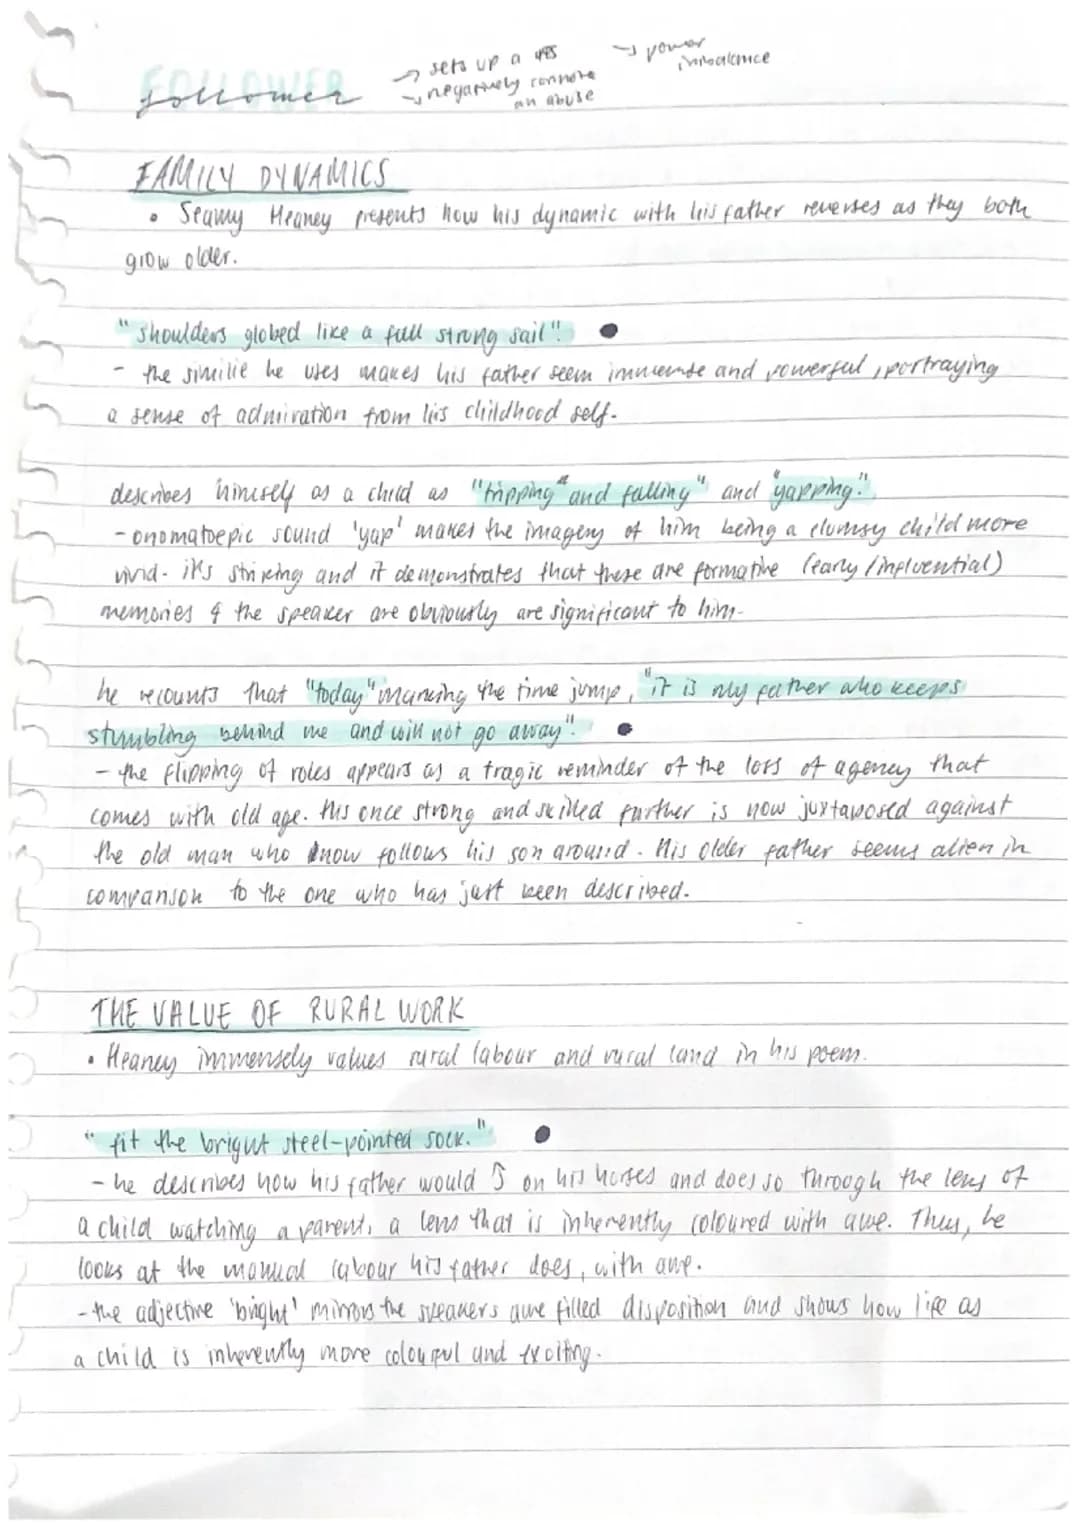 FOLLOWER
follower
→ sets up a
→ negatively connote
an abuse
→ power
imbalance
FAMILY DYNAMICS
• Seamy Heaney presents how his dynamic with his father reverses as they both
grow older.
"shoulders globed like a full strong sail".
- the similie he uses makes his father seem immense and powerful, portraying
a sense of admiration from his childhood self.
describes himself as a child as "tripping" and falling" and "yapping."
- onomatoepic sound 'yap' makes the imagery of him being a clumsy child more
vivid - it's striking and it demonstrates that these are formative (early/influential)
memories & the speaker are obviously are significant to him.
he recounts that "today" marking the time jump, "it is my father who keeps
stumbling behind me and will not go away".
- the flipping of roles appears as a tragic reminder of the loss of agency that
comes with old age. his once strong and skilled farther is now juxtaposed against
the old man who know follows his son around. His older father seems alien in
comparison to the one who has just been described.
THE VALUE OF RURAL WORK
• Heaney immensely values rural labour and rural land in his poem.
"fit the bright steel-pointed sock."
- he describes how his father would on his horses and does so through the lens of
a child watching a parent, a lens that is inherently coloured with awe. Thus, he
looks at the manual labour his father does, with awe.
- the adjective 'bright' mirrors the speakers awe filled disposition and shows how life as
a child is inherently more colourful and exciting.